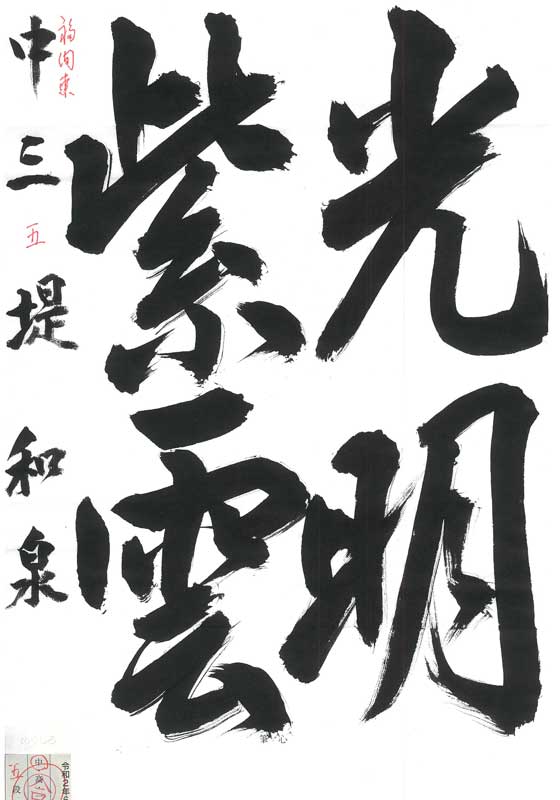 光明
紫雲
福間東
中三 五 堤 和泉
筆心
令和2年
中
五段